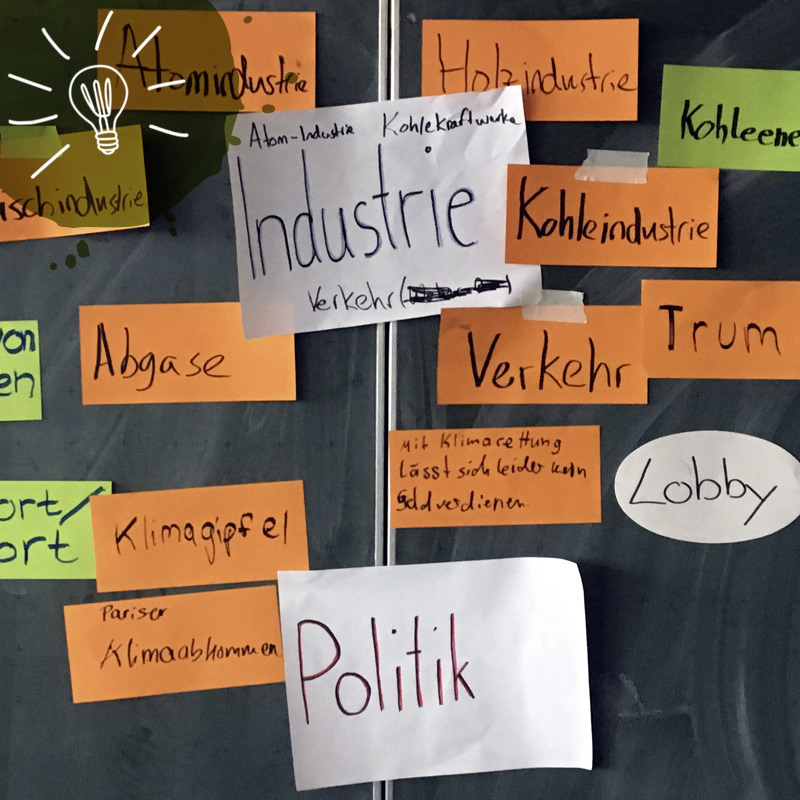 Atomindustrie
Holzindustrie
Kohleene
Atom-Industrie Kohlekraftwerke
Industrie
Verkehr
schindustrie
Kohleindustrie
von
en
Abgase
Verkehr
Trum
Mit Klimarettung
Lässt sich leider kein
Geld verdienen.
Lobby
ort/
ort
Klimagipfel
Pariser
Klimaabkommen
Politik